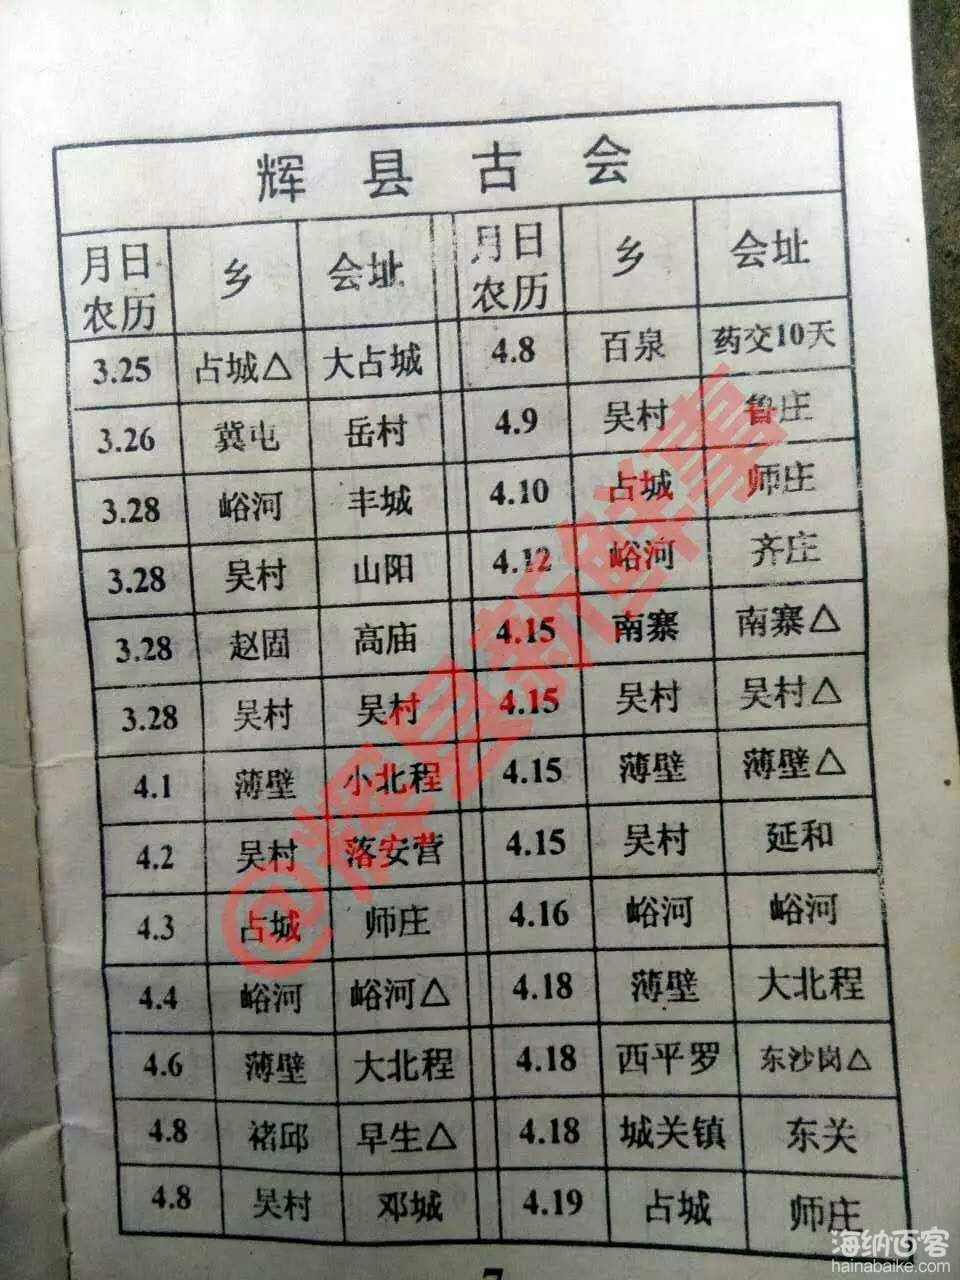 辉县古会
月日农历 乡 会址 月日农历 乡 会址
3.25 占城△ 大占城 4.8 百泉 药交10天
3.26 冀屯 岳村 4.9 吴村 鲁庄
3.28 峪河 丰城 4.10 占城 师庄
3.28 吴村 山阳 4.12 峪河 齐庄
3.28 赵固 高庙 4.15 南寨 南寨△
3.28 吴村 吴村 4.15 吴村 吴村△
4.1 薄壁 小北程 4.15 薄壁 薄壁△
4.2 吴村 落安营 4.15 吴村 延和
4.3 占城 师庄 4.16 峪河 峪河
4.4 峪河 峪河△ 4.18 薄壁 大北程
4.6 薄壁 大北程 4.18 西平罗 东沙岗△
4.8 褚邱 早生△ 4.18 城关镇 东关
4.8 吴村 邓城 4.19 占城 师庄
@辉县新鲜事
海纳百客
hainabaike.com